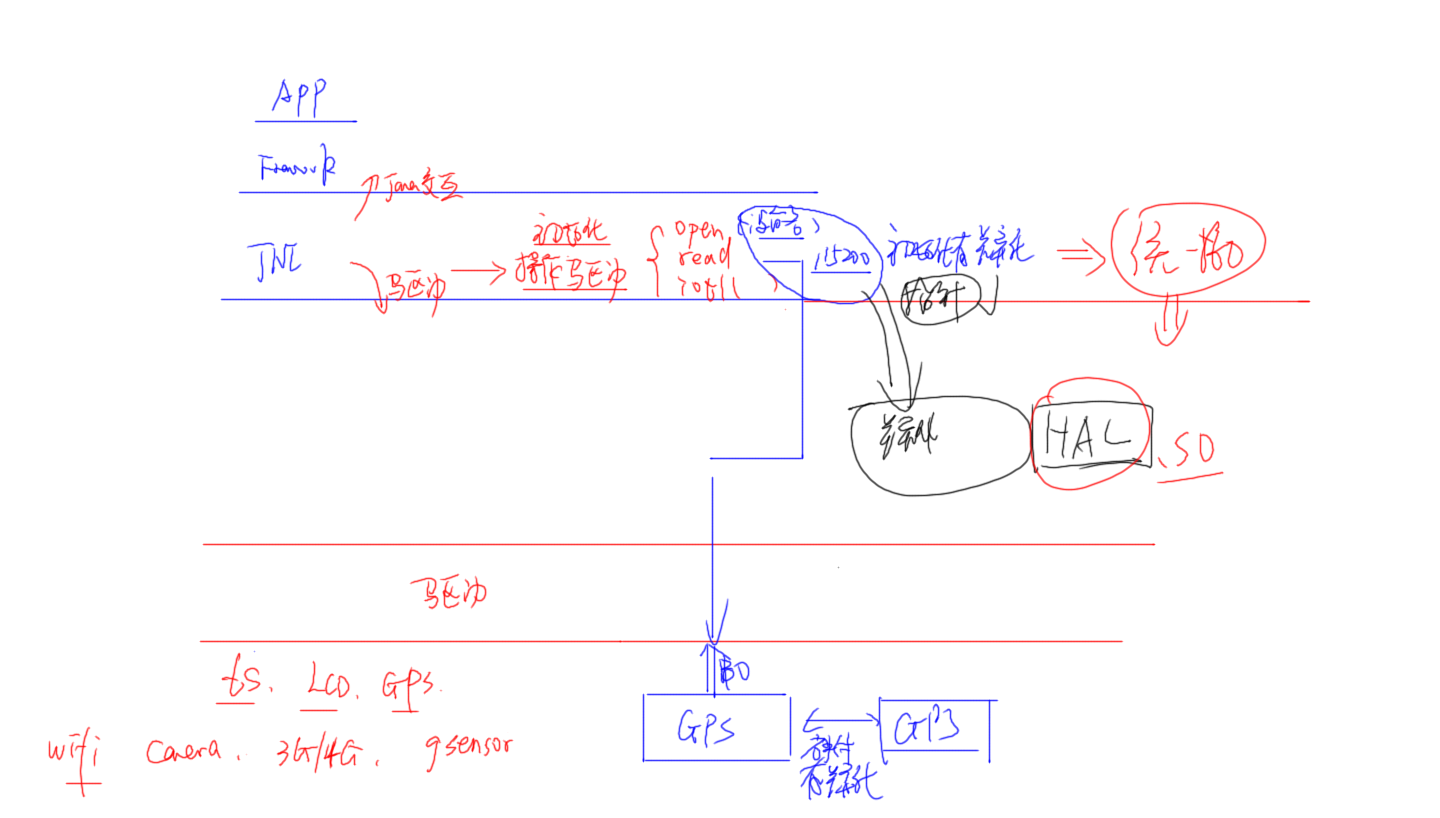 APP
Framwork
Java交互
JNI
驱动
初始化
操作驱动
open
read
ioctl( )
(波特率)
115200
初始化有差异化
统一接口
差异化
HAL
.SO
驱动
ts、LCD、GPS.
wifi camera、3G/4G、gsensor
GPS
GPS
硬件
有差异化